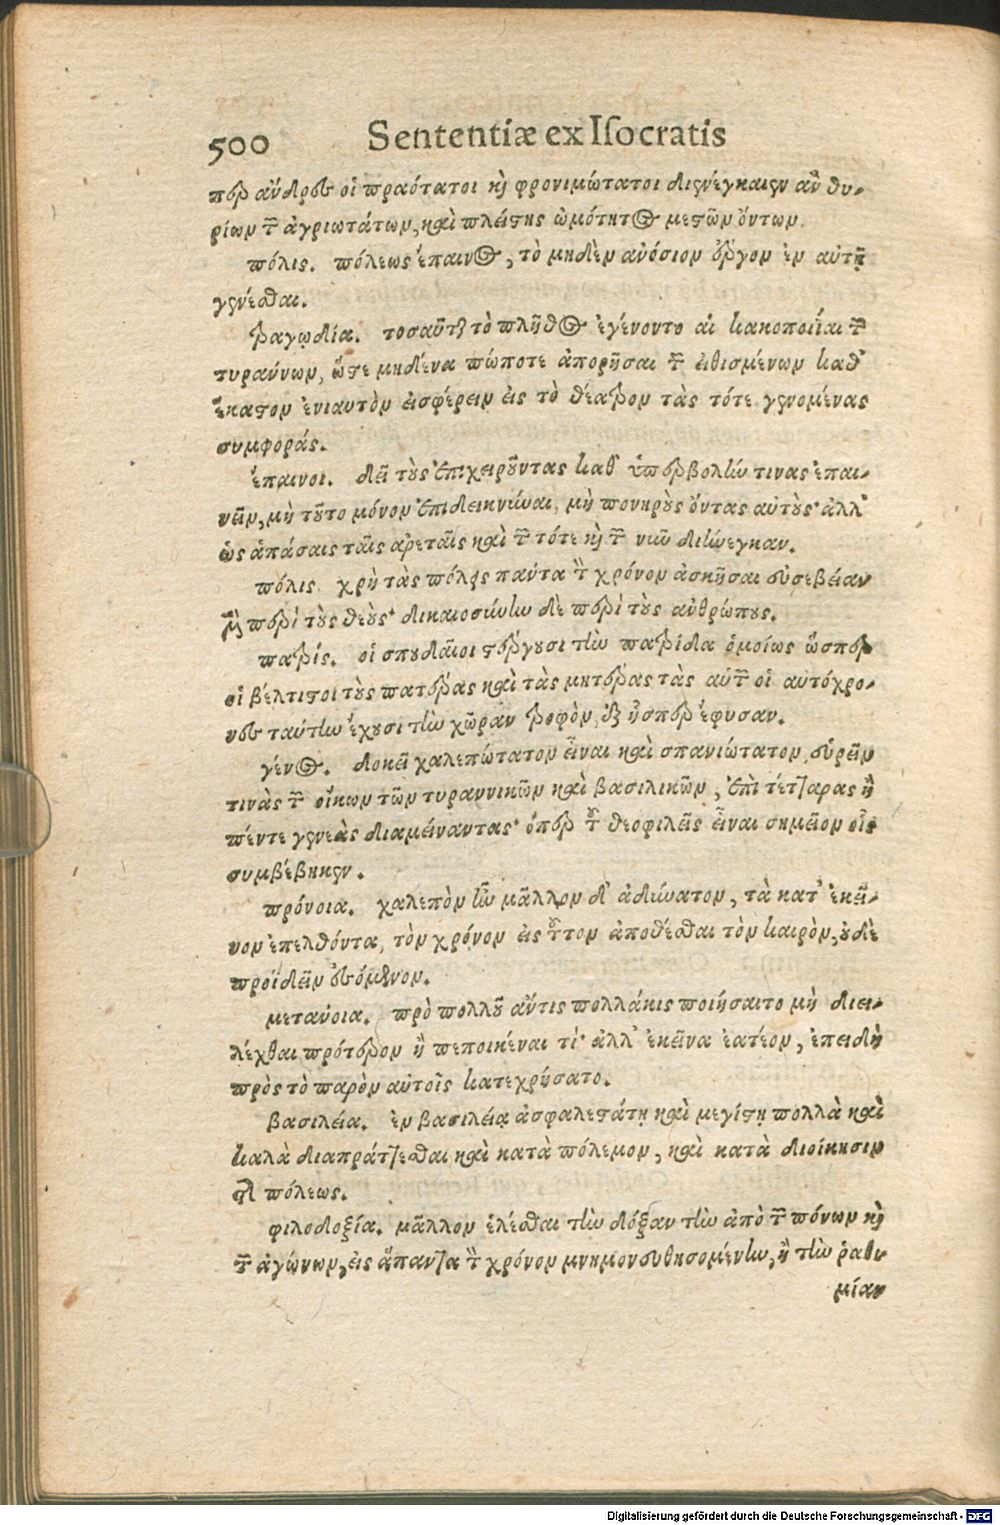 500 Sententiæ ex Iſocratis
περ ἄνδρες οἱ πραότατοι καὶ φρονιμώτατοι διενέγκαιεν ἂν θη-
ρίων τῶν ἀγριωτάτων, καὶ πλείστης ὠμότητος μεστῶν ὄντων.
πόλις. πόλεως ἔπαινος, τὸ μηδὲν ἀνόσιον ἔργον ἐν αὐτῇ
γενέσθαι.
τραγῳδία. τοσαῦται τὸ πλῆθος ἐγένοντο αἱ κακοποιΐαι τῶν
τυράννων, ὥστε μηδένα πώποτε ἀπορῆσαι τῶν εἰθισμένων καθ'
ἕκαστον ἐνιαυτὸν εἰσφέρειν εἰς τὸ θέατρον τὰς τότε γενομένας
συμφοράς.
ἔπαινοι. δεῖ τοὺς ἐπιχειροῦντας καθ' ὑπερβολήν τινας ἐπαι-
νεῖν, μὴ τοῦτο μόνον ἐπιδεικνύναι, μὴ πονηροὺς ὄντας αὐτούς· ἀλλ'
ὡς ἁπάσαις ταῖς ἀρεταῖς καὶ τῶν τότε καὶ τῶν νῦν διήνεγκαν.
πόλις. χρὴ τὰς πόλεις πάντα τὸν χρόνον ἀσκῆσαι εὐσεβείαν
μὲν περὶ τοὺς θεούς· δικαιοσύνην δὲ περὶ τοὺς ἀνθρώπους.
πατρίς. οἱ σπουδαῖοι στέργουσι τὴν πατρίδα ὁμοίως ὥσπερ
οἱ βέλτιστοι τοὺς πατέρας καὶ τὰς μητέρας τὰς αὑτῶν οἱ αὐτόχθο-
νες ταύτην ἔχουσι τὴν χῶραν τροφὸν, ἐξ ἧσπερ ἔφυσαν.
γένος. δοκεῖ χαλεπώτατον εἶναι καὶ σπανιώτατον, εὑρεῖν
τινὰς τῶν οἴκων τῶν τυραννικῶν καὶ βασιλικῶν, ἐπὶ τέτταρας ἢ
πέντε γενεὰς διαμείναντας· ὅπερ τοῦ θεοφιλεῖς εἶναι σημεῖον οἷς
συμβέβηκεν.
πρόνοια. χαλεπὸν ἦν μᾶλλον δ' ἀδύνατον, τὰ κατ' ἐκεῖ-
νον ἐπελθόντα, τὸν χρόνον εἰς τοῦτον ἀποθέσθαι τὸν καιρὸν, οὐδὲ
προϊδεῖν ἐσόμενον.
μετανοια. πρὸ πολλοῦ ἄν τις πολλάκις ποιήσαιτο μὴ διει-
λέχθαι πρότερον ἢ πεποικέναι τί· ἀλλ' ἐκεῖνα ἐατέον, ἐπειδὴ
πρὸς τὸ παρὸν αὐτοῖς κατεχρήσατο.
βασιλεία. ἐν βασιλείᾳ ἀσφαλεστάτῃ καὶ μεγίστῃ πολλὰ καὶ
καλὰ διαπράττεσθαι καὶ κατὰ πόλεμον, καὶ κατὰ διοίκησιν
τῆς πόλεως.
φιλοδοξία. μᾶλλον ἑλέσθαι τὴν δόξαν τὴν ἀπὸ τῶν πόνων καὶ
τῶν ἀγώνων, εἰς ἅπαντα τὸν χρόνον μνημονευθησομένην, ἢ τὴν ῥαθυ-
μίαν
Digitalisierung gefördert durch die Deutsche Forschungsgemeinschaft - DFG